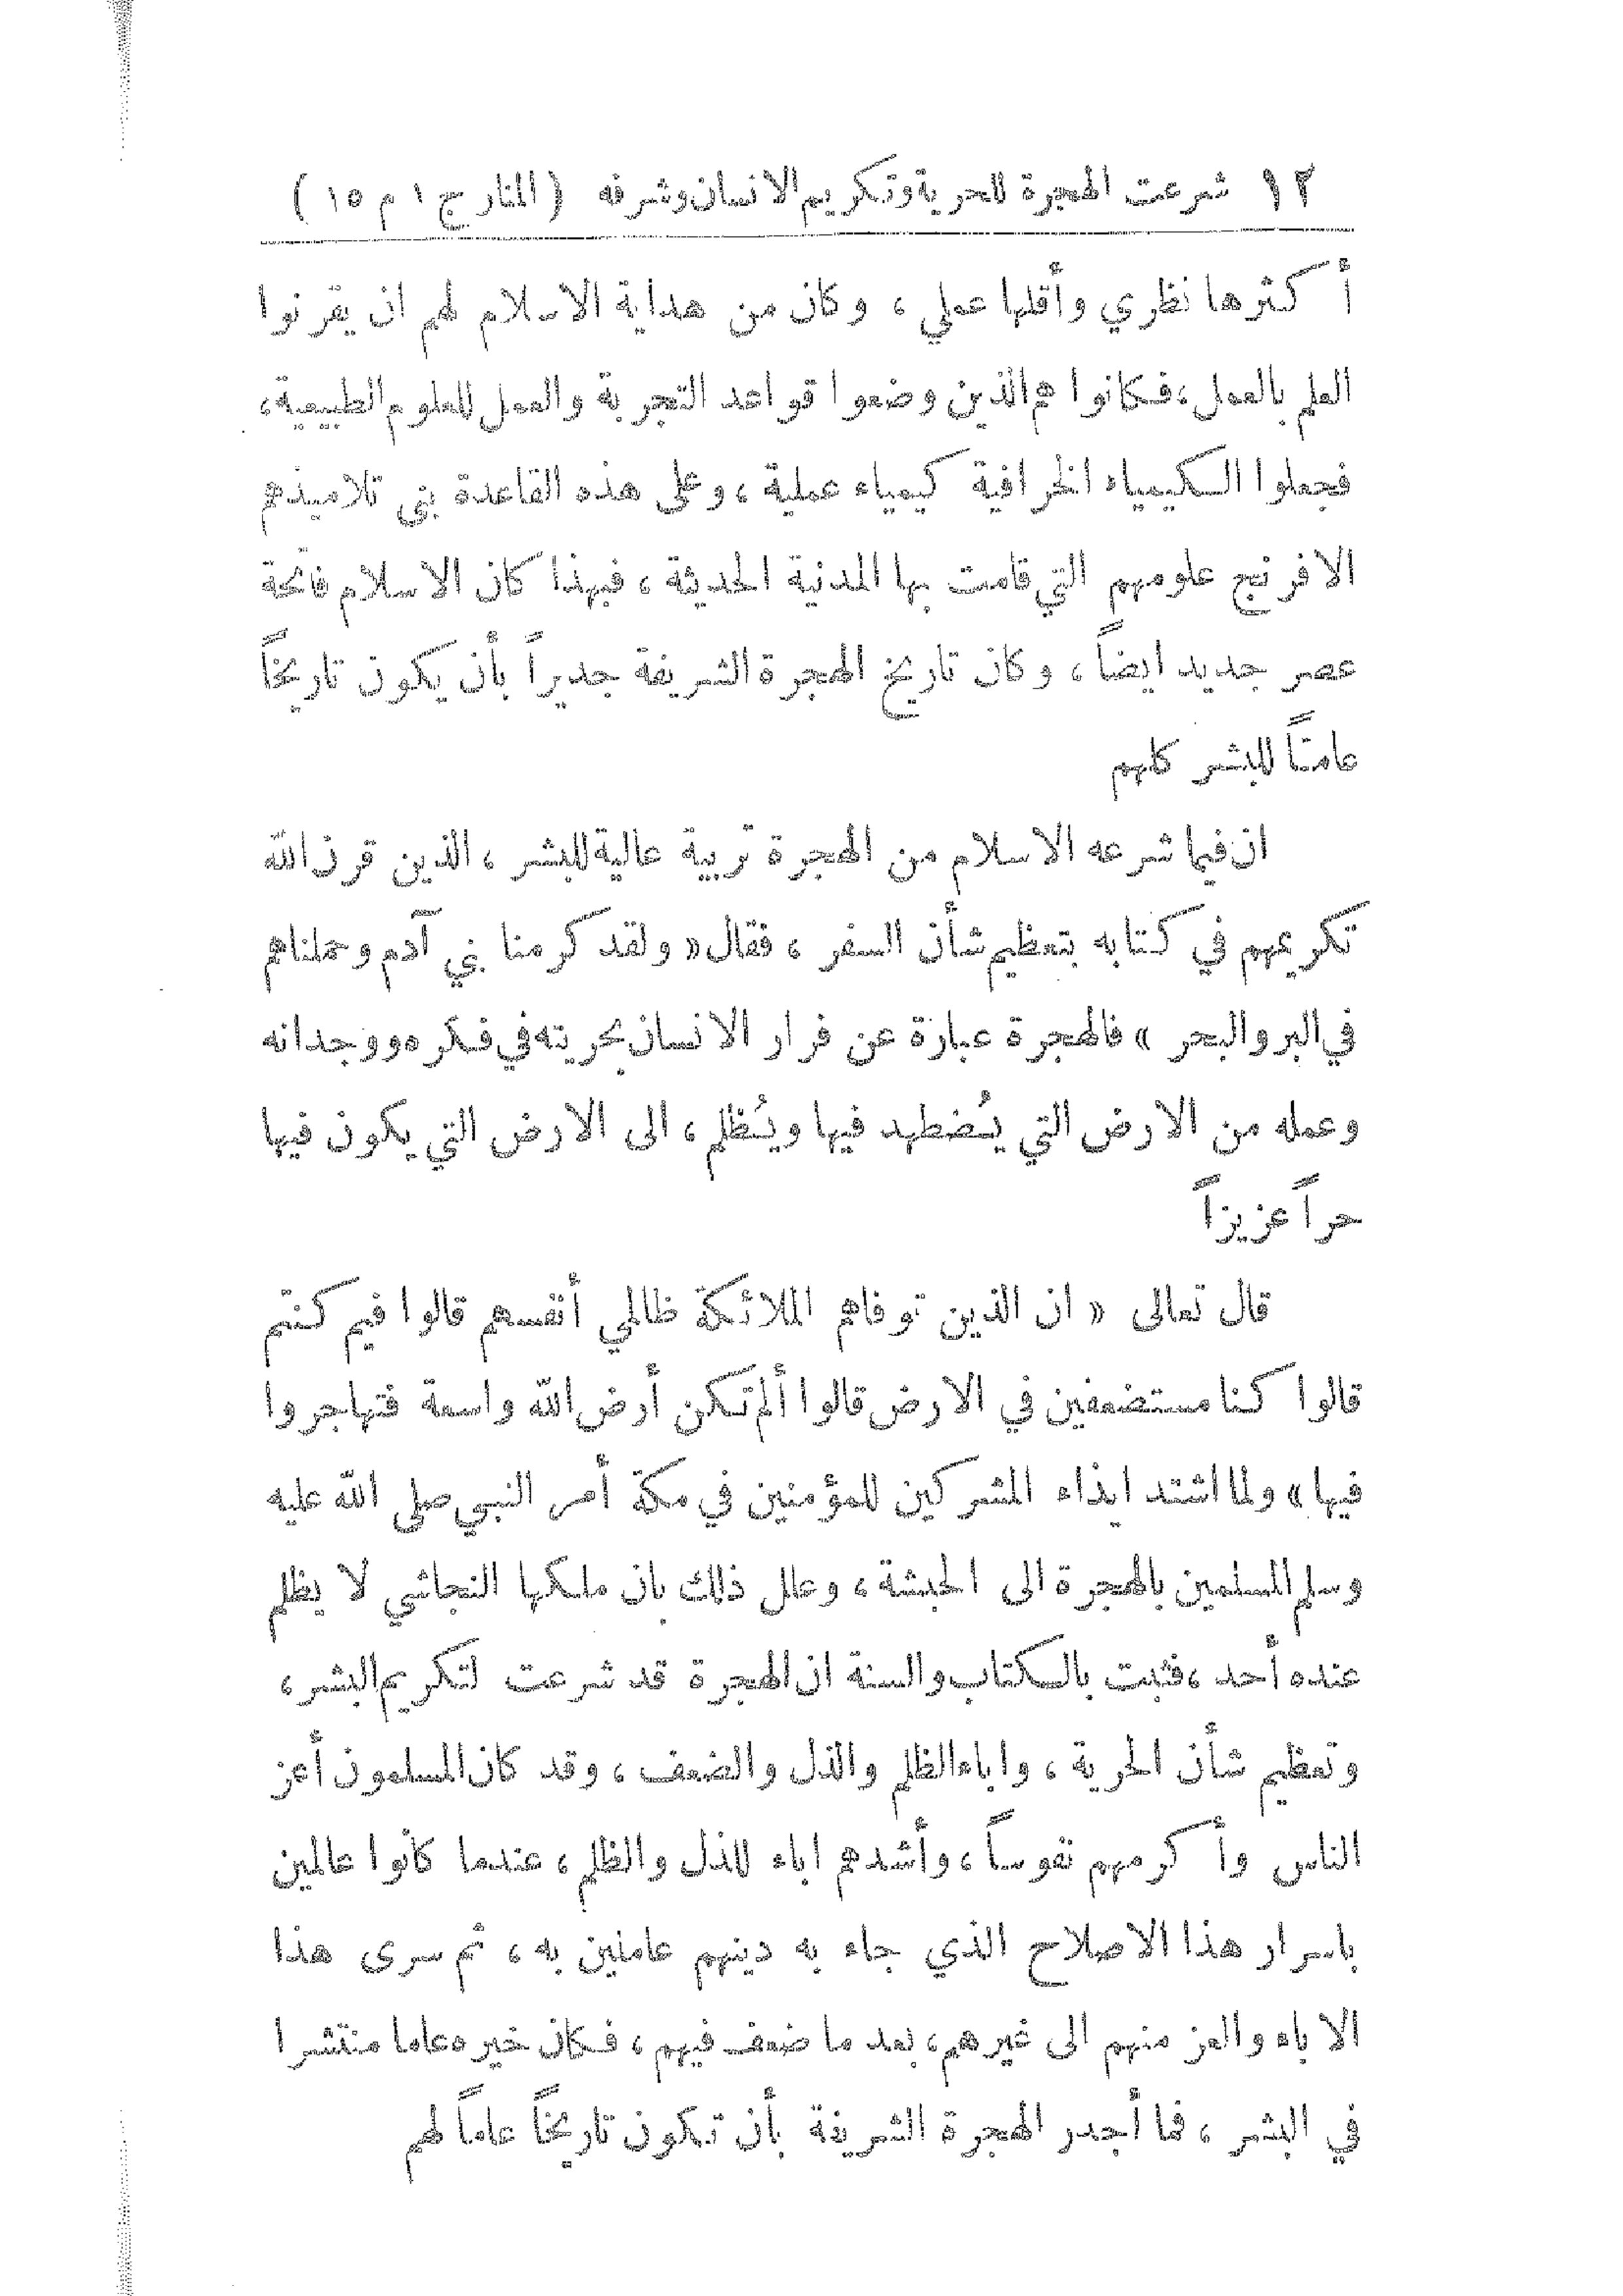 ١٢ شرعت الهجرة للحرية وتكريم الانسان وشرفه ( المنار ج ١ م ١٥ )
أكثرها نظري وأقلها عملي ، وكان من هداية الاسلام لهم ان يقرنوا
العلم بالعمل ، فكانوا هم الذين وضعوا قواعد التجربة والعمل للعلوم الطبيعية ،
فجعلوا الكيمياء الخرافية كيمياء عملية ، وعلى هذه القاعدة بنى تلاميذهم
الافرنج علومهم التي قامت بها المدنية الحديثة ، فبهذا كان الاسلام فاتحة
عصر جديد ايضاً ، وكان تاريخ الهجرة الشريفة جديراً بأن يكون تاريخاً
عامّاً للبشر كلهم
ان فيما شرعه الاسلام من الهجرة تربية عالية للبشر ، الذين قرن الله
تكريمهم في كتابه بتعظيم شأن السفر ، فقال « ولقد كرمنا بني آدم وحملناهم
في البر والبحر » فالهجرة عبارة عن فرار الانسان بحريته في فكره ووجدانه
وعمله من الارض التي يُضطهد فيها ويُظلم ، الى الارض التي يكون فيها
حراً عزيزاً
قال تعالى « ان الذين توفاهم الملائكة ظالمي أنفسهم قالوا فيم كنتم
قالوا كنا مستضعفين في الارض قالوا ألم تكن أرض الله واسعة فتهاجروا
فيها » ولما اشتد ايذاء المشركين للمؤمنين في مكة أمر النبي صلى الله عليه
وسلم المسلمين بالهجرة الى الحبشة ، وعلل ذلك بان ملكها النجاشي لا يظلم
عنده أحد ، فثبت بالكتاب والسنة ان الهجرة قد شرعت لتكريم البشر ،
وتعظيم شأن الحرية ، واباء الظلم والذل والضعف ، وقد كان المسلمون أعز
الناس وأكرمهم نفوساً ، وأشدهم اباء للذل والظلم ، عندما كانوا عالمين
باسرار هذا الاصلاح الذي جاء به دينهم عاملين به ، ثم سرى هذا
الاباء والعز منهم الى غيرهم ، بعد ما ضعف فيهم ، فكان خيره عاما منتشرا
في البشر ، فما أجدر الهجرة الشريفة بأن تكون تاريخاً عاماً لهم